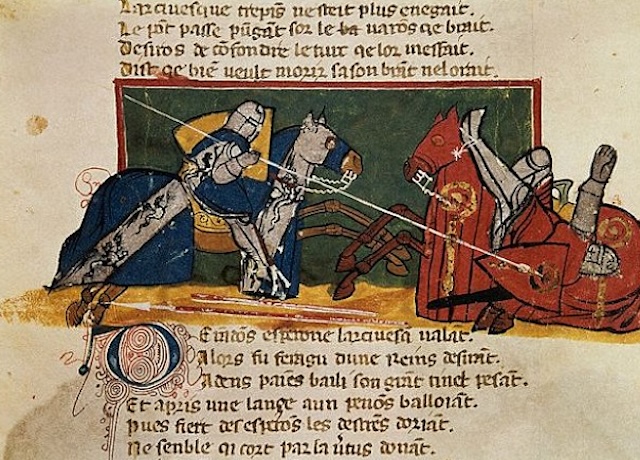 Larcivesque trepais ne steit plus enegait.
Le pōt passe pūgāt sor le ba varōs qe brait.
Desiros de cōfondre le turc qe lor mesfait.
Dist qe biē veult morir sa son brāt nel orait.
esperone larcivesq a valāt.
Alors fu feragu dune reins desirāt.
Adens paiēs baili son grāt tinel pesāt.
Et apris une lançe a un penōs balloiāt.
Pues fiert des esperōs les destrers
Ne senble qi cort par la donāt.